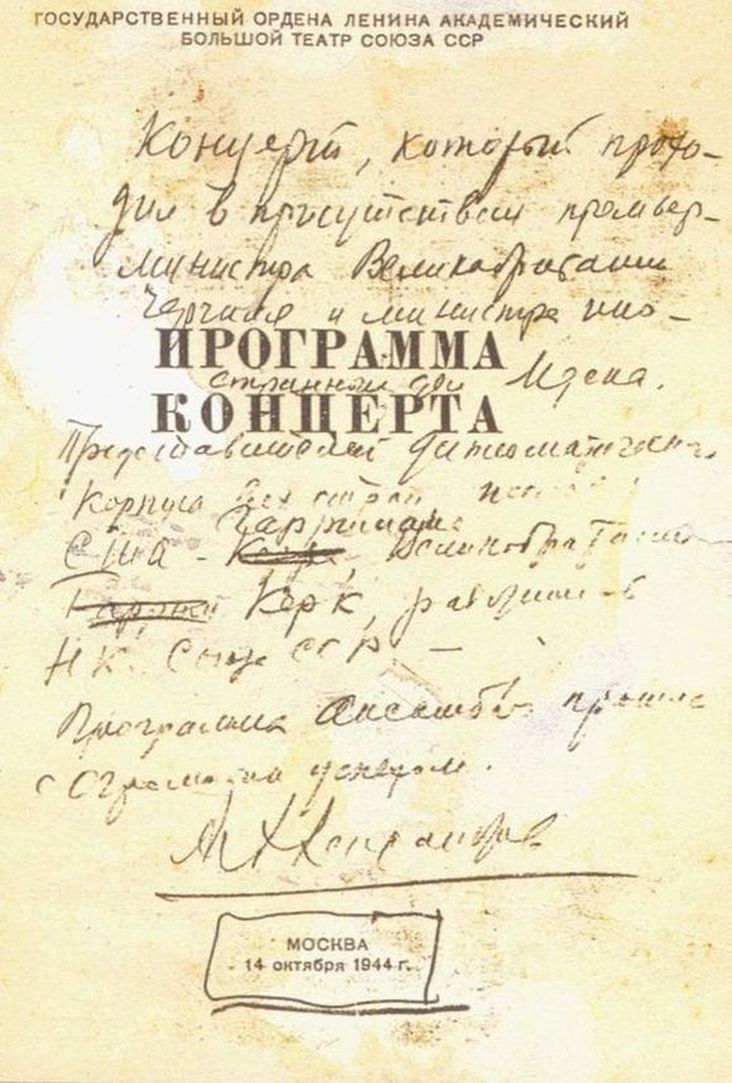 ГОСУДАРСТВЕННЫЙ ОРДЕНА ЛЕНИНА АКАДЕМИЧЕСКИЙ
БОЛЬШОЙ ТЕАТР СОЮЗА ССР
Концерт, который прохо-
дил в присутствии премьер-
министра Великобритании
Черчиля и министра ино-
ПРОГРАММА
странных дел Идена.
КОНЦЕРТА
Представителей дипломатического
Корпуса всех стран
Гарримана
США - Великобритании
Керк,
НК. Союза ССР -
Программа Ансамбля прошла
с огромным успехом.
МОСКВА
14 октября 1944 г.